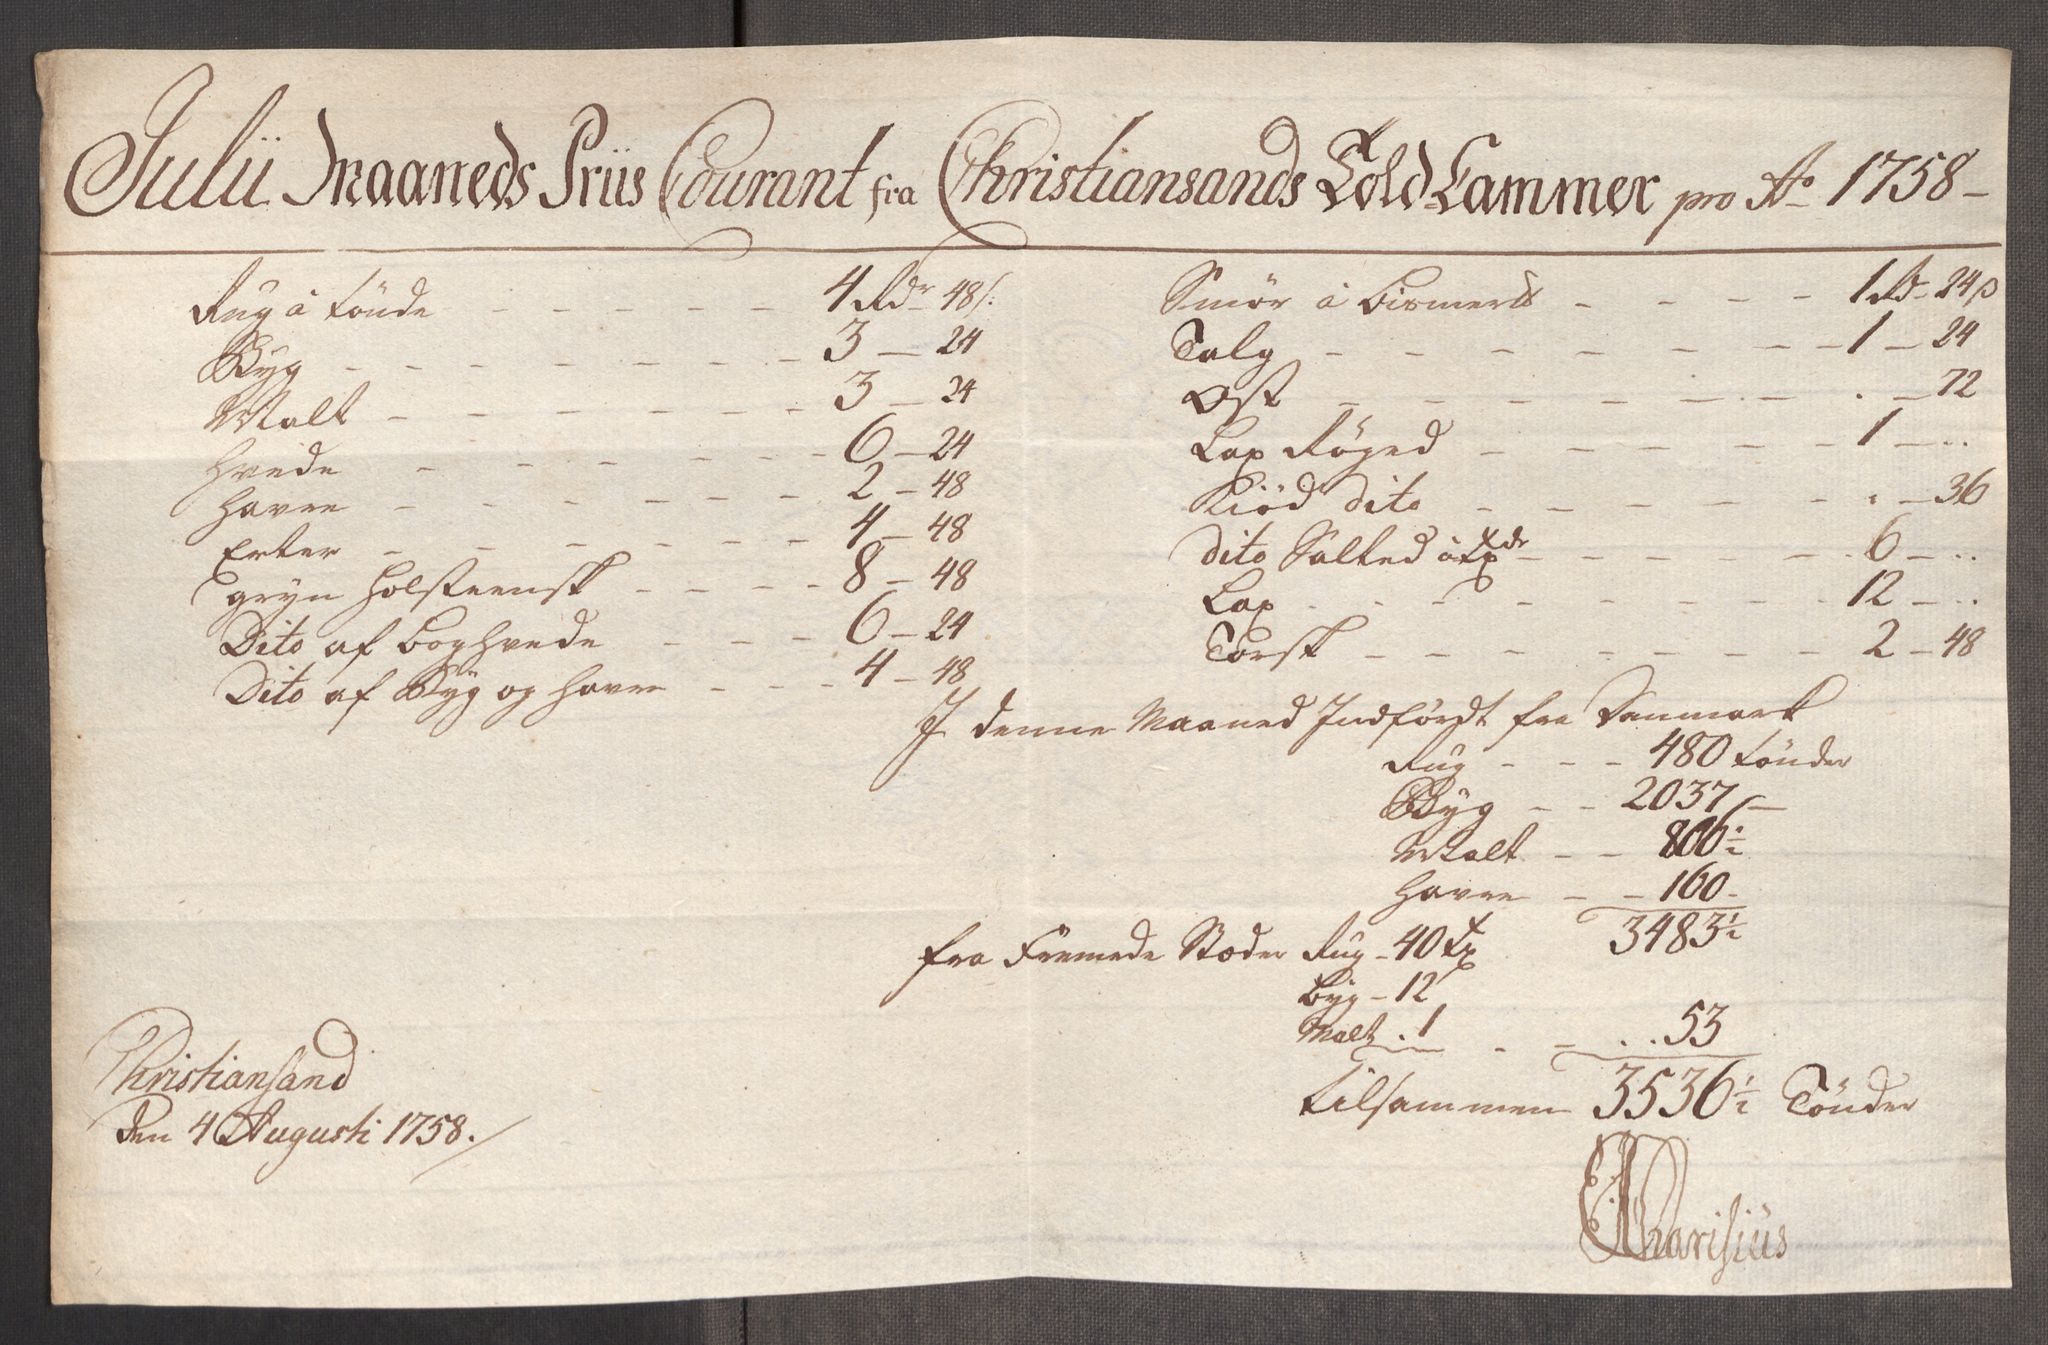 Julii Maaneds Priis Courant fra Christiansands Told-Cammer pro Ao 1758-
Rug a tönde - - - - 4 Rdr 48 s:
Byg - - - - - - 3 - 24
Malt - - - - - 3 - 24
Hvede - - - - - 6 - 24
Havre - - - - - 2 - 48
Erter - - - - - 4 - 48
gryn Holsteensk - - - - 8 - 48
Dito af boghvede - - - - 6 - 24
Dito af Byg og Havre - - - 4 - 48
Smör a Bismer℔ - - - - 1 Rd - 24 s
Talg - - - - - - 1 - 24
Ost - - - - - - . - 72
Lax Röged - - - - - 1 - ..
Kiöd dito - - - - - . - 36
Dito Salted a Tønde - - - - 6 - ..
Lax - - - - - - 12 - ..
Torsk - - - - - - 2 - 48
I denne Maaned Indfördt fra Danmark
Rug - - - 480 tönder
Byg - - 2037 -
Malt - - 806½
Havre - - 160 -
3483½
fra Fremede Stæder Rug - 40 Tr
Byg - 12
Malt . 1 - - . . 53
tilsammen 3536½ Tönder
Christiansand
den 4 Augusti 1758.
Charisius